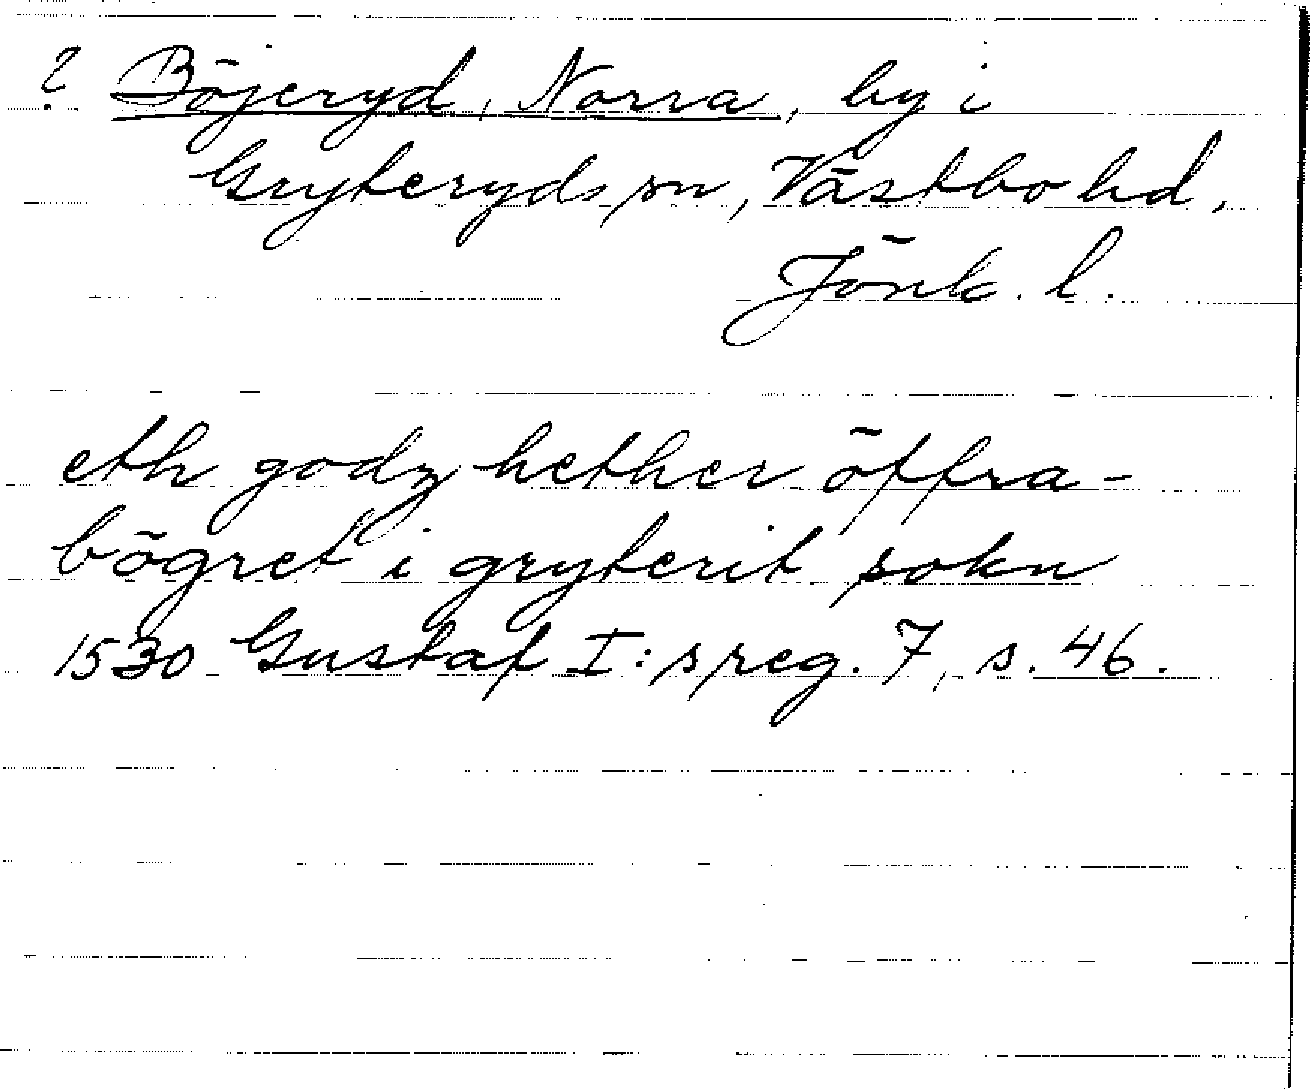 ? Böjeryd, Norra, by i
Gryteryds sn, Västbo hd,
Jönk. l.
eth godz hether öffra-
bögret i gryterit sokn
1530 Gustaf I:s reg. 7, s. 46.